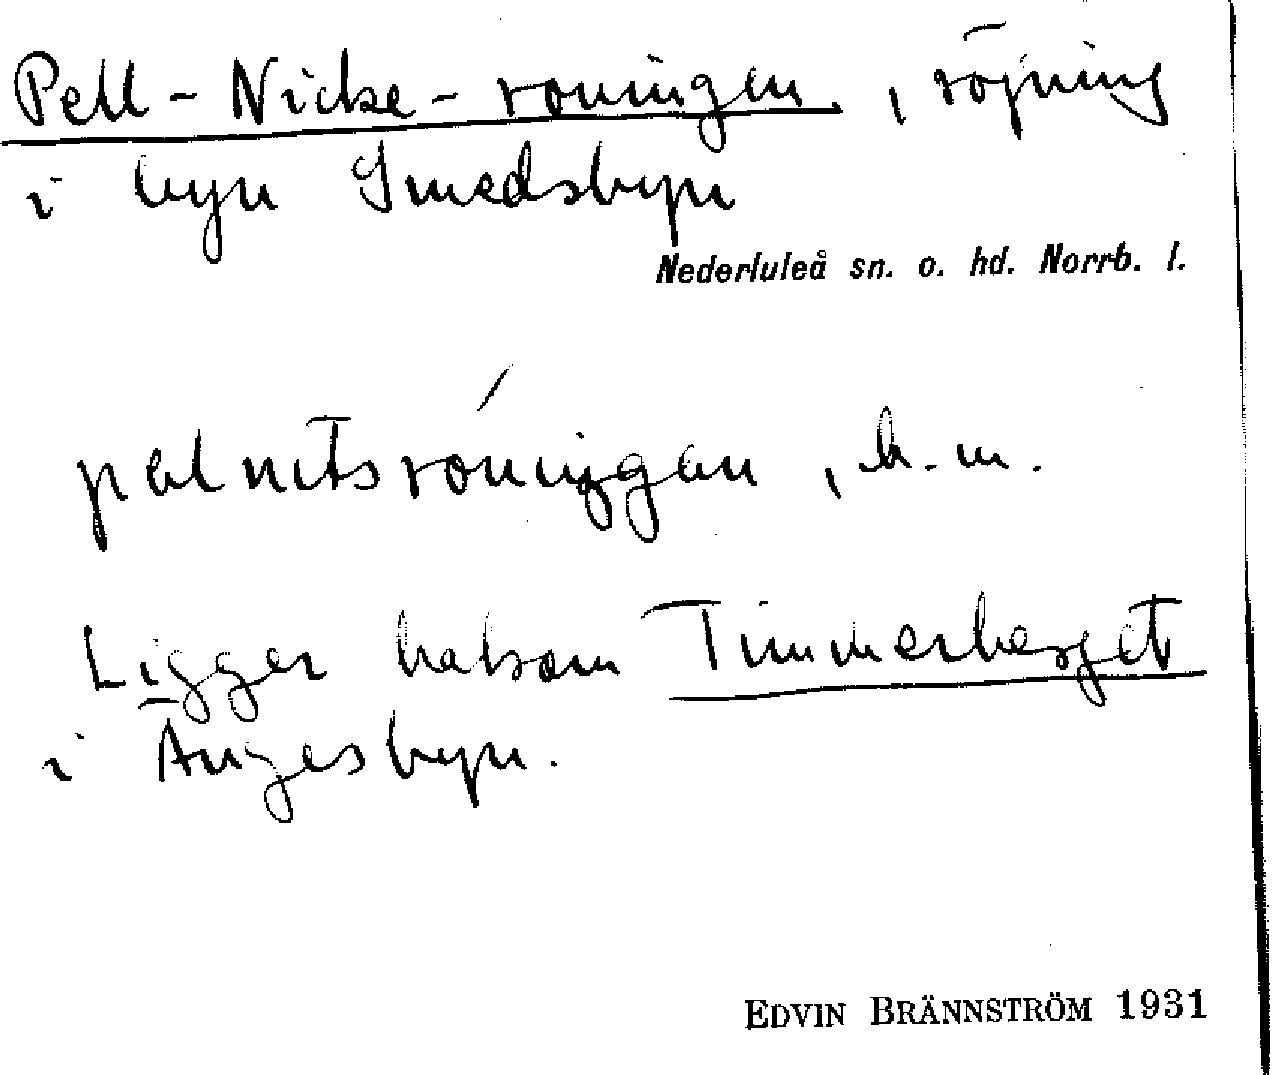 Pell-Nicke-roningen, röjning
i byn Smedsbyn
Nederluleå sn. o. hd. Norrb. l.
, b. m.
Ligger bakom Timmerberget
i Ängesbyn.
EDVIN BRÄNNSTRÖM 1931